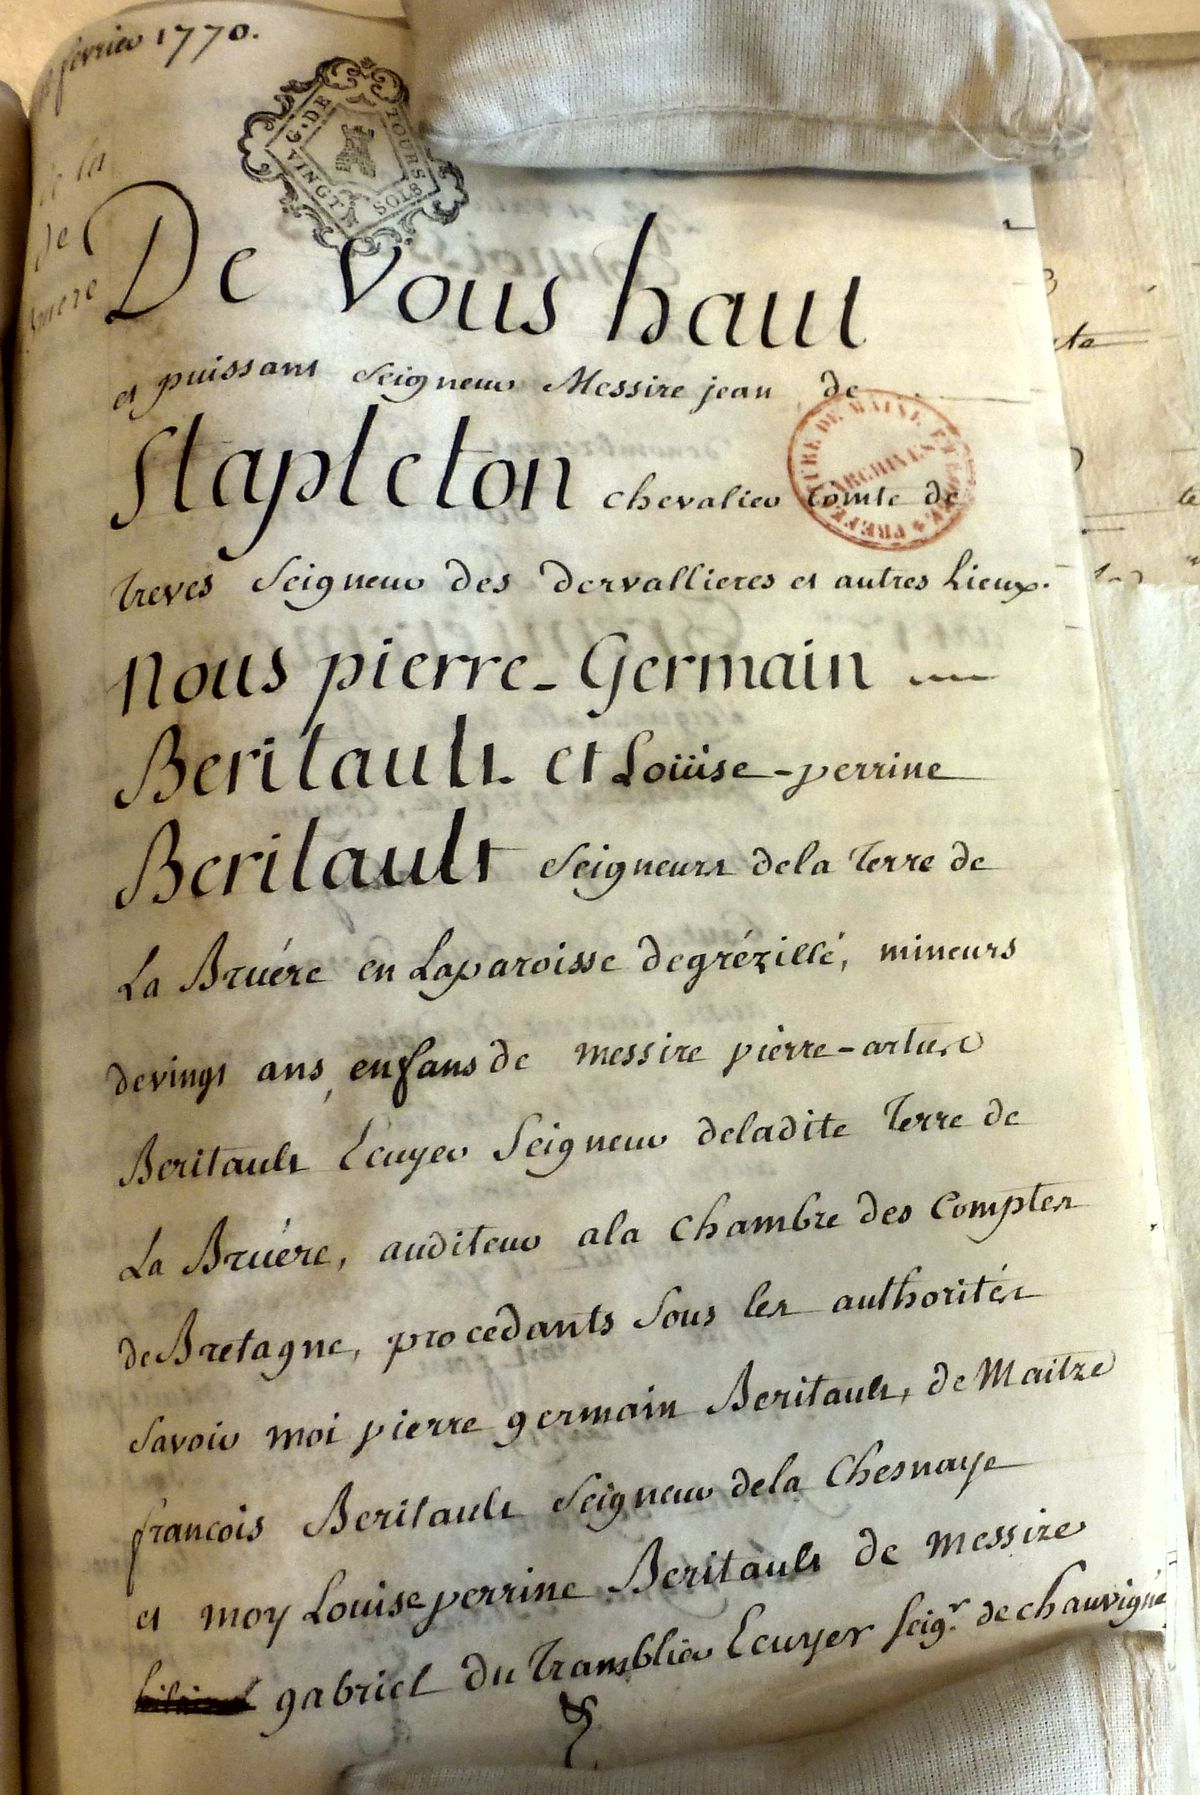 février 1770.
G. DE TOURS
VINGT SOLS
de la
de
De Vous haut
et puissant Seigneur Messire jean de
Stapleton chevalier Comte de
PREFECTURE DE MAINE ET
ARCHIVES
Treves Seigneur des dervallieres et autres Lieux.
Nous pierre-Germain
Beritault et Loüise-perrine
Beritault Seigneurs dela Terre de
La Bruére en Laparoisse degrézillé, mineurs
devingt ans, enfans de messire pierre-artur
Beritault Ecuyer Seigneur deladite Terre de
La Bruére, auditeur ala Chambre des Comptes
deBretagne, procedants Sous les authorités
Savoir moi pierre germain Beritault, de Maitre
françois Beritault Seigneur dela Chesnaye
et moy Louise perrine Beritault de messire
gabriel du Tramblier Ecuyer Seigr. de chauvigné